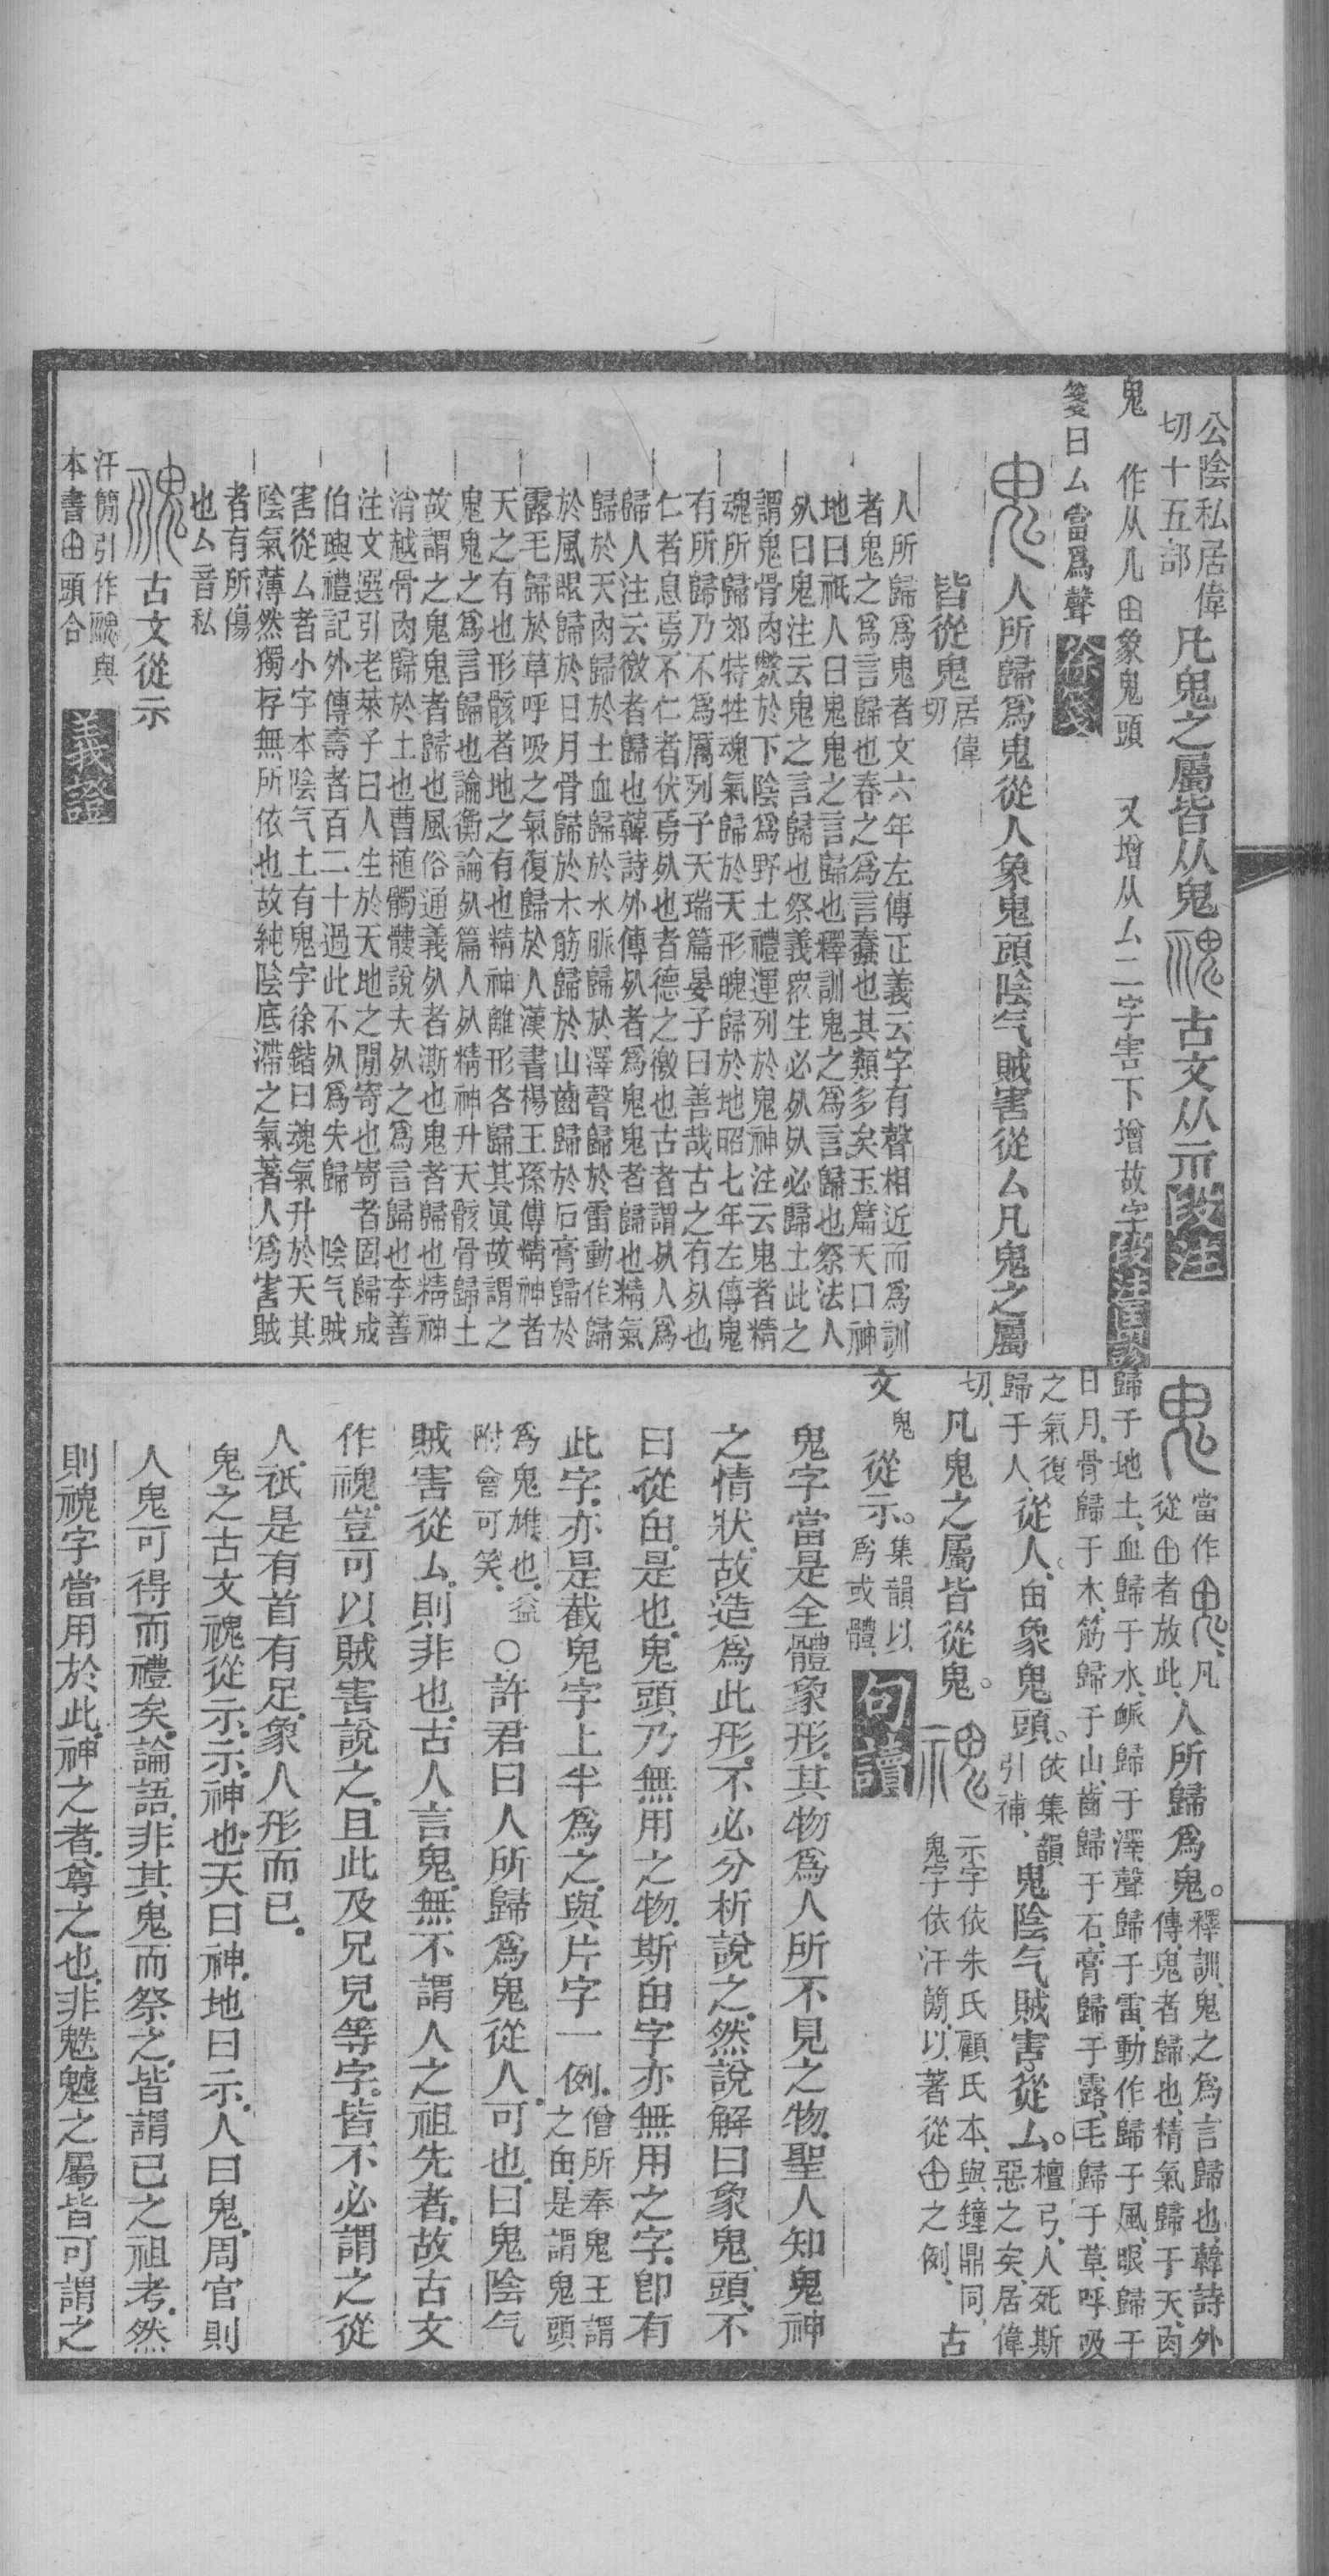 公陰私居偉
切十五部
凡鬼之屬皆从鬼
古文从示
段注
鬼
作从儿甶象鬼頭
又增从厶二字害下增故字
段注匡謬
箋曰厶當爲聲
徐箋
人所歸爲鬼從人象鬼頭陰气賊害從厶凡鬼之屬
皆從鬼
居偉
切
人所歸爲鬼者文六年左傳正義云字有聲相近而爲訓
者鬼之爲言歸也春之爲言蠢也其類多矣玉篇天曰神
地曰祇人曰鬼鬼之言歸也釋訓鬼之爲言歸也祭法人
𣦸曰鬼注云鬼之言歸也祭義眾生必𣦸𣦸必歸土此之
謂鬼骨肉斃於下陰爲野土禮運列於鬼神注云鬼者精
魂所歸郊特牲魂氣歸於天形魄歸於地昭七年左傳鬼
有所歸乃不爲厲列子天瑞篇晏子曰善哉古之有𣦸也
仁者息焉不仁者伏焉𣦸也者德之徼也古者謂𣦸人爲
歸人注云徼者歸也韓詩外傳𣦸者爲鬼鬼者歸也精氣
歸於天肉歸於土血歸於水脈歸於澤聲歸於雷動作歸
於風眼歸於日月骨歸於木筋歸於山齒歸於石膏歸於
露毛歸於草呼吸之氣復歸於人漢書楊王孫傳精神者
天之有也形骸者地之有也精神離形各歸其眞故謂之
鬼鬼之爲言歸也論衡論𣦸篇人𣦸精神升天骸骨歸土
故謂之鬼鬼者歸也風俗通義𣦸者澌也鬼者歸也精神
消越骨肉歸於土也曹植髑髏說夫𣦸之爲言歸也李善
注文選引老萊子曰人生於天地之閒寄也寄者固歸成
伯璵禮記外傳壽者百二十過此不𣦸爲失歸 陰气賊
害從厶者小字本陰气土有鬼字徐鍇曰魂氣升於天其
陰氣薄然獨存無所依也故純陰底滯之氣著人爲害賊
者有所傷
也厶音私
古文從示
汗簡引作與
本書甶頭合
義證
當作凡
從甶者放此、
人所歸爲鬼。
釋訓、鬼之爲言歸也、韓詩外
傳、鬼者歸也、精氣歸于天、肉
歸于地土、血歸于水、脈歸于澤、聲歸于雷、動作歸于風、眼歸于
日月、骨歸于木、筋歸于山、齒歸于石、膏歸于露、毛歸于草、呼吸
之氣復
歸于人、
從人、甶象鬼頭。
依集韻
引補、
鬼陰气賊害、從厶。
檀弓、人死斯
惡之矣、居偉
切、
凡鬼之屬皆從鬼。
示字依朱氏顧氏本、與鐘鼎同、
鬼字依汗簡、以著從甶之例、
古
文
鬼
從示。
集韻以
爲或體、
句讀
鬼字當是全體象形、其物爲人所不見之物、聖人知鬼神
之情狀、故造爲此形、不必分析說之、然說解曰象鬼頭、不
曰從甶、是也、鬼頭乃無用之物、斯甶字亦無用之字、卽有
此字、亦是截鬼字上半爲之、與片字一例、
僧所奉鬼王謂
之甶、是謂鬼頭
爲鬼雄也、益
附會可笑、
○許君曰人所歸爲鬼從人、可也、曰鬼陰气
賊害從厶、則非也、古人言鬼、無不謂人之祖先者、故古文
作䰠、豈可以賊害說之、且此及兄兒等字、皆不必謂之從
人、祇是有首有足、象人形而已、
鬼之古文䰠從示、示神也、天曰神、地曰示、人曰鬼、周官則
人鬼可得而禮矣、論語、非其鬼而祭之、皆謂己之祖考、然
則䰠字當用於此、神之者、尊之也、非魃魖之屬皆可謂之